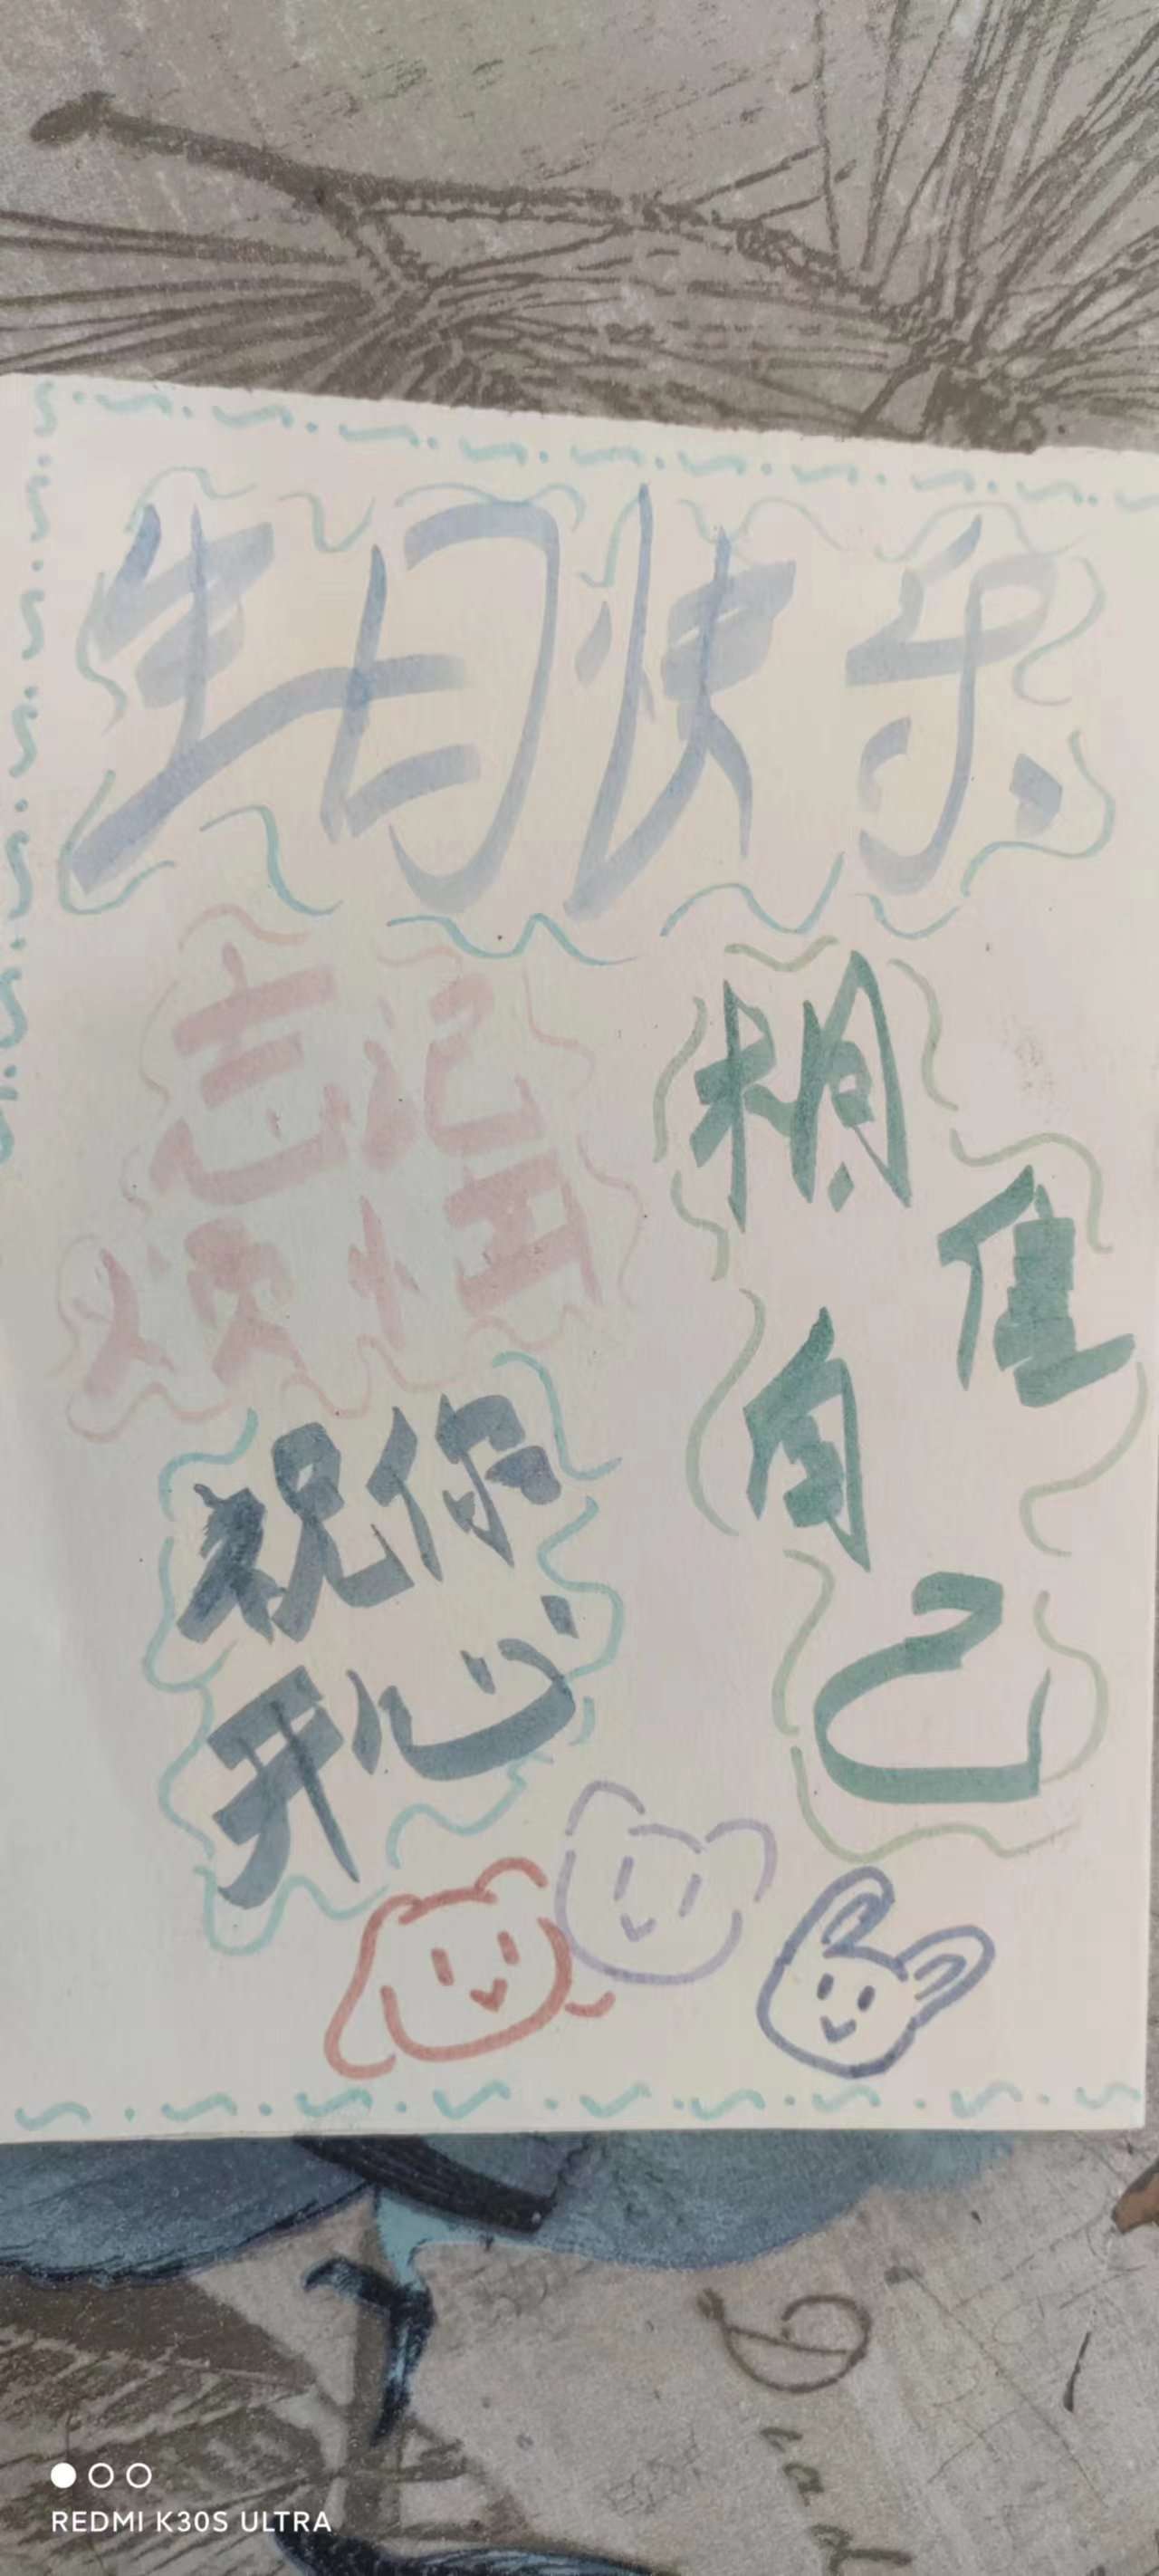 生日快乐
忘记
烦恼
祝你
开心
自
己
REDMI K30S ULTRA